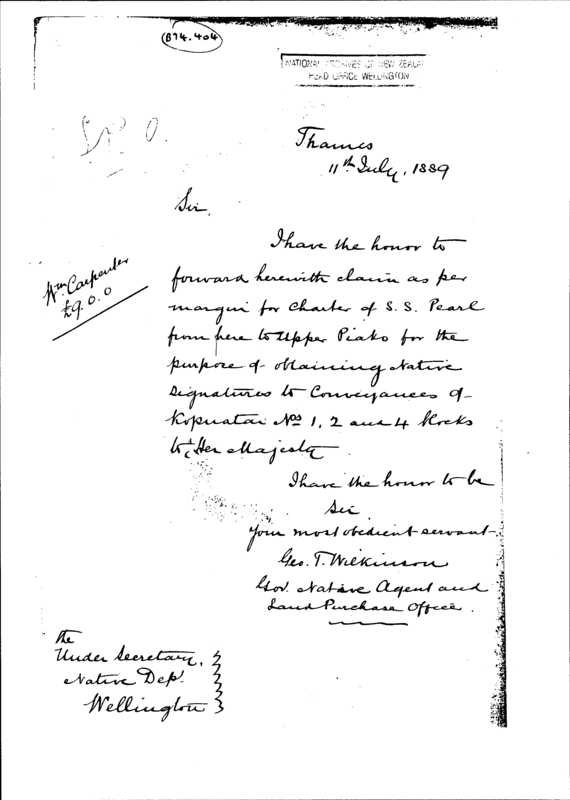 (B74.404
NATIONAL ARCHIVES OF NEW ZEALAND
HEAD OFFICE WELLINGTON
Thames
11th July, 1889
Sir,
I have the honor to
forward herewith claim as per
margin for charter of S.S. Pearl
from here to Upper Piako for the
purpose of obtaining Native
Signatures to Conveyances of
Kopuatai Nos 1, 2 and 4 blocks
to Her Majesty
I have the honor to be
Sir
Your most obedient servant
Geo. T. Wilkinson
Gov. Native Agent and
Land Purchase Officer.
Wm Carpenter
£9.0.0
The
Under Secretary,
Native Dept.
Wellington